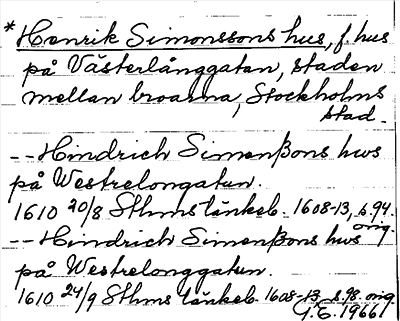 *Henrik Simonssons hus, f. hus
på Västerlånggatan, staden
mellan broarna, Stockholms
stad.
-- Hindrich Simenßons hws
på Westrelongatun.
1610 20/8 Sthms tänkeb. 1608-13, s. 94.
orig.
-- Hindrich Simenßons hws
på Westrelonggatun.
1610 24/9 Sthms tänkeb. 1608-13, s. 98. orig.
G.E. 1966